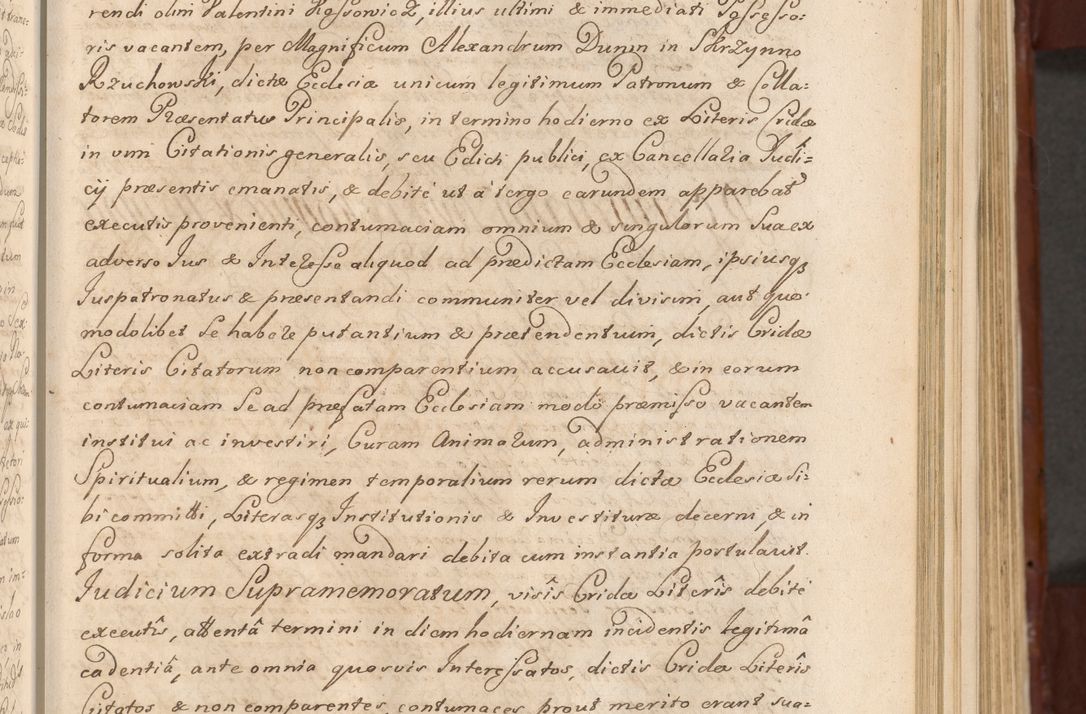 rendi olim Valentini Kossowicz, illius ultimi & immediati Possesso=
ris vacantem, per Magnificum Alexandrum Dunin in Skrzynno
Rzuchowski, dictæ Ecclesiæ unicum legitimum Patronum & Colla=
torem Præsentatus Principalis, in termino hodierno ex Literis Cridæ
in vim Citationis generalis, seu Edicti publici, ex Cancellaria Judi=
cij præsentis emanatis, & debite ut a tergo earundem apparebat
executis provenienti, contumaciam omnium & singulorum sua ex
adverso Jus & Interesse aliquod ad prædictam Ecclesiam, ipsiusq3
Juspatronatus & præsentandi communiter vel divisim, aut quo=
modolibet se habere putantium & prætendentium, dictis Cridæ
Literis Citatorum non comparentium accusavit, & in eorum
contumaciam se ad præfatam Ecclesiam modo præmisso vacantem
institui ac investiri, Curam Animarum, administrationem
Spiritualium, & regimen temporalium rerum dictæ Ecclesiæ si=
bi committi, Literasq3 Institutionis & Investituræ decerni, & in
forma solita extradi mandari debita cum instantia postulavit.
Judicium Supramemoratum, visîs Cridæ Literîs debite
executîs, attentâ termini in diem hodiernam incidentis legitimâ
cadentiâ, ante omnia quosvis Interessatos, dictis Cridæ Literîs
Citatos & non comparentes, contumaces prout merito erant sua=